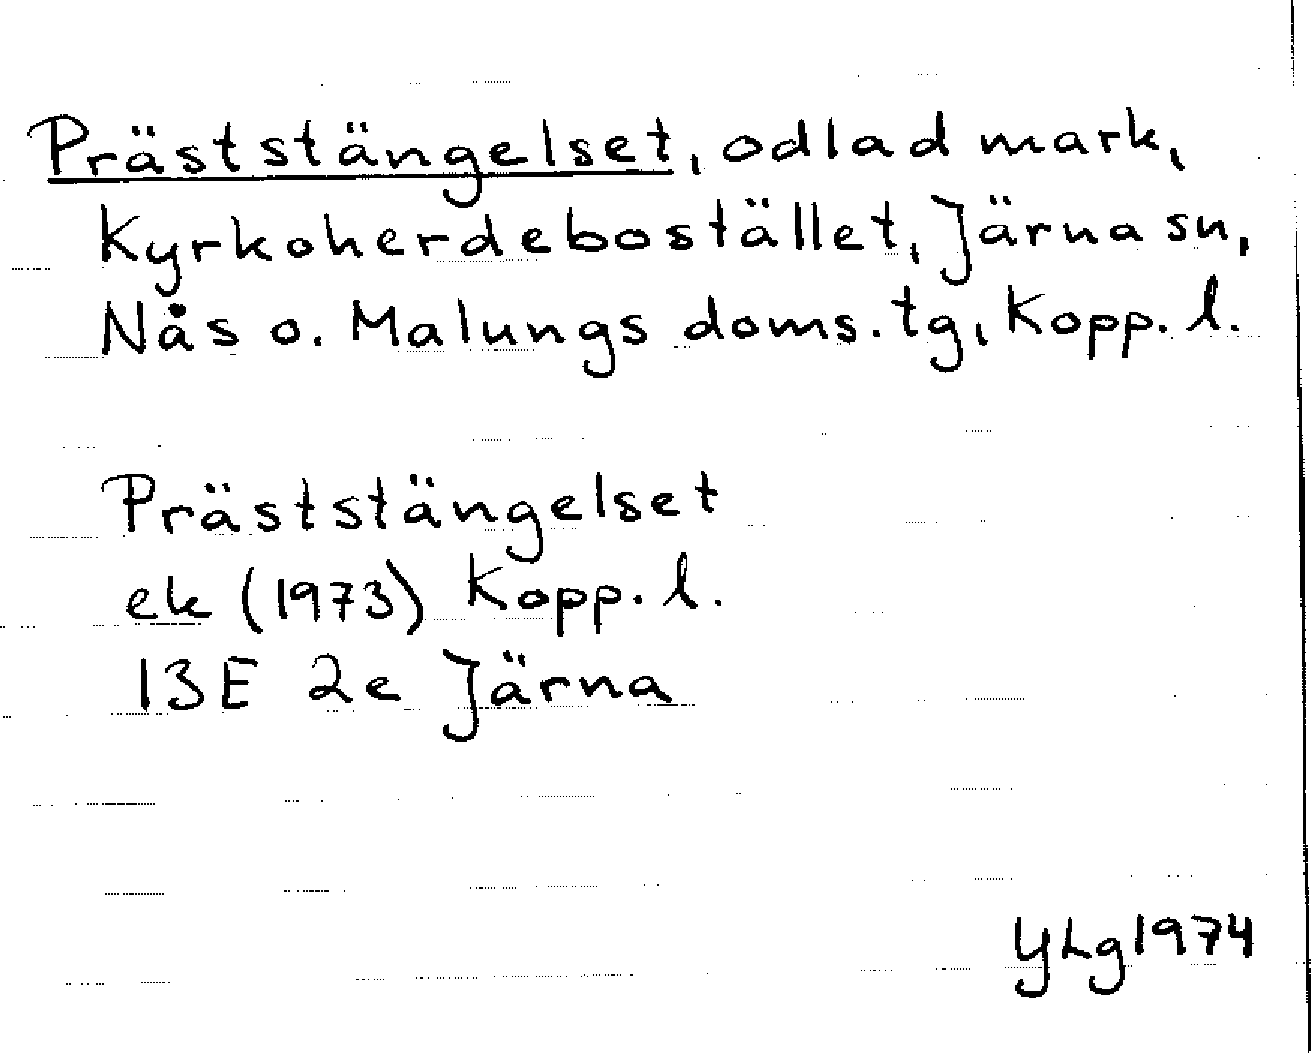 Präststängelset, odlad mark,
Kyrkoherdebostället, Järna sn,
Nås o. Malungs doms. tg, Kopp. l.
Präststängelset
ek (1973) Kopp. l.
13E 2e Järna
YLg 1974